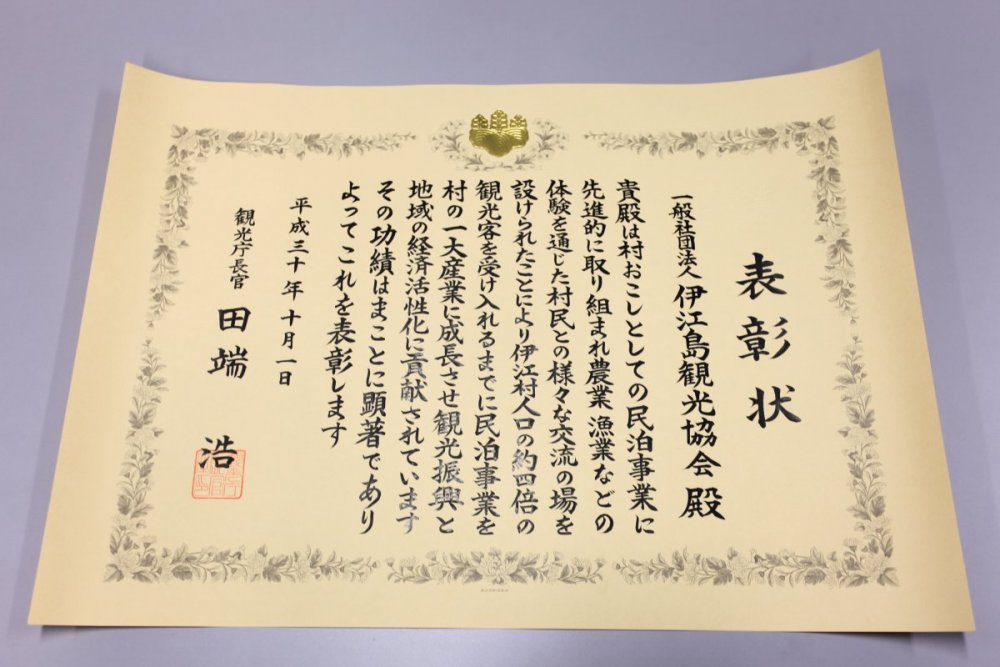 表彰状
一般社団法人 伊江島観光協会 殿
貴殿は村おこしとしての民泊事業に
先進的に取り組まれ農業漁業などの
体験を通じた村民との様々な交流の場を
設けられたことにより伊江村人口の約四倍の
観光客を受け入れるまでに民泊事業を
村の一大産業に成長させ観光振興と
地域の経済活性化に貢献されています
その功績はまことに顕著であり
よってこれを表彰します
平成三十年十月一日
観光庁長官 田端 浩